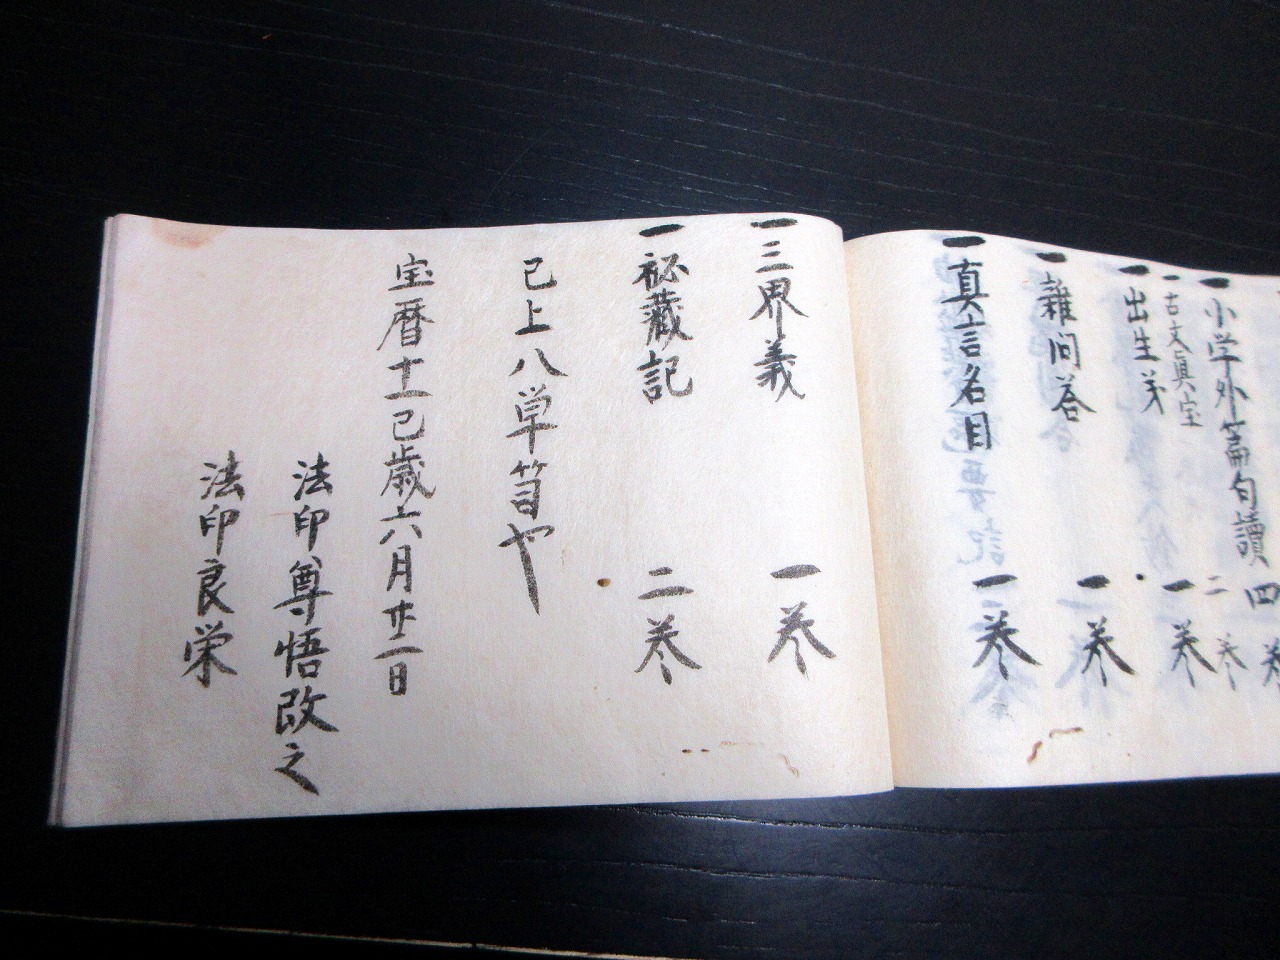 一小学外篇句讀 四
一古文眞宝 二巻
一出生义 一巻
一雜问荅 一巻
一真言名目 一巻
一三界義 一巻
一秘藏記 二巻
已上八草笥や
宝暦十一巳歳六月廿二日
法印尊悟改之
法印良栄